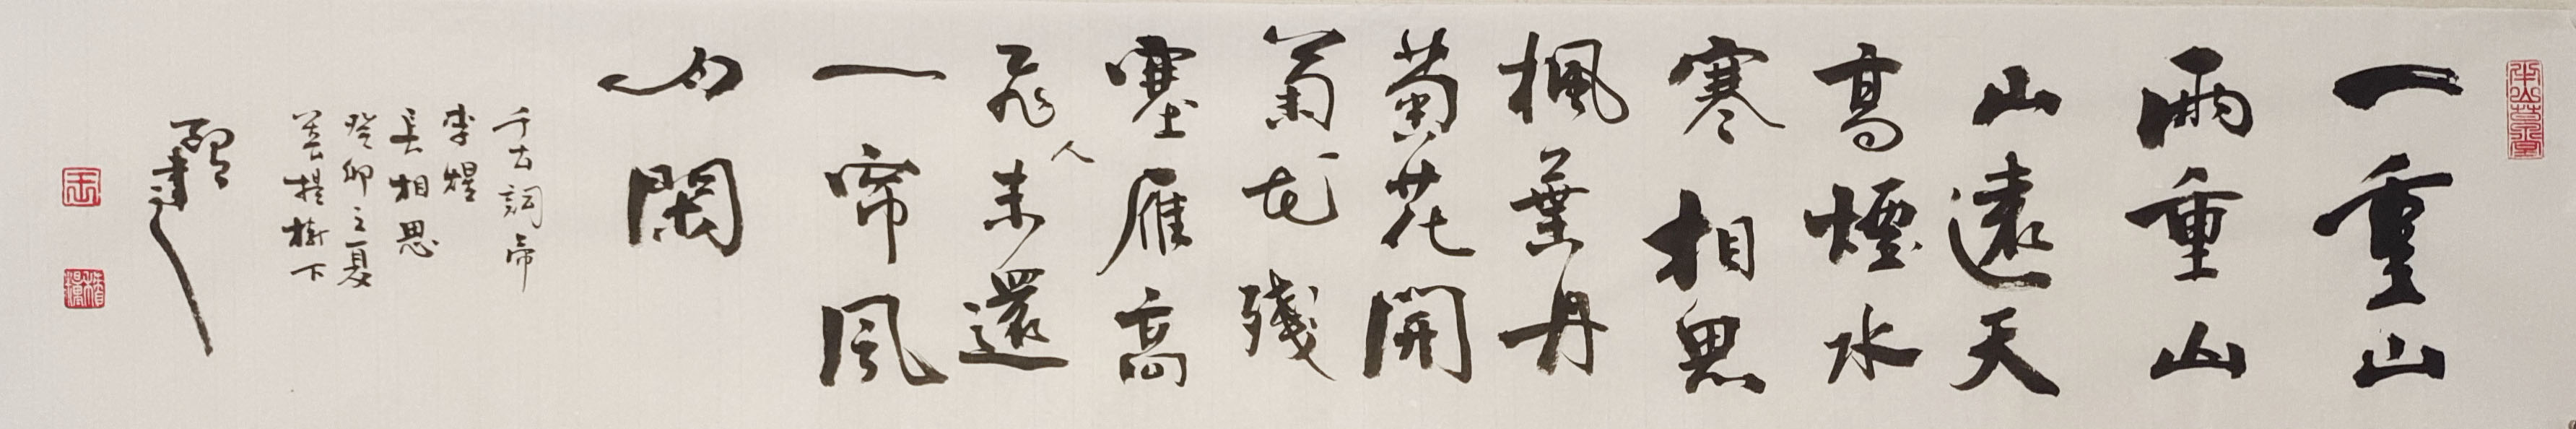 一重山
兩重山
山遠天
高煙水
寒相思
楓葉丹
菊花開
菊花殘
塞雁高
飛人未還
一帘風
月閑
千古詞帝
李煜
長相思
癸卯之夏
菩提樹下